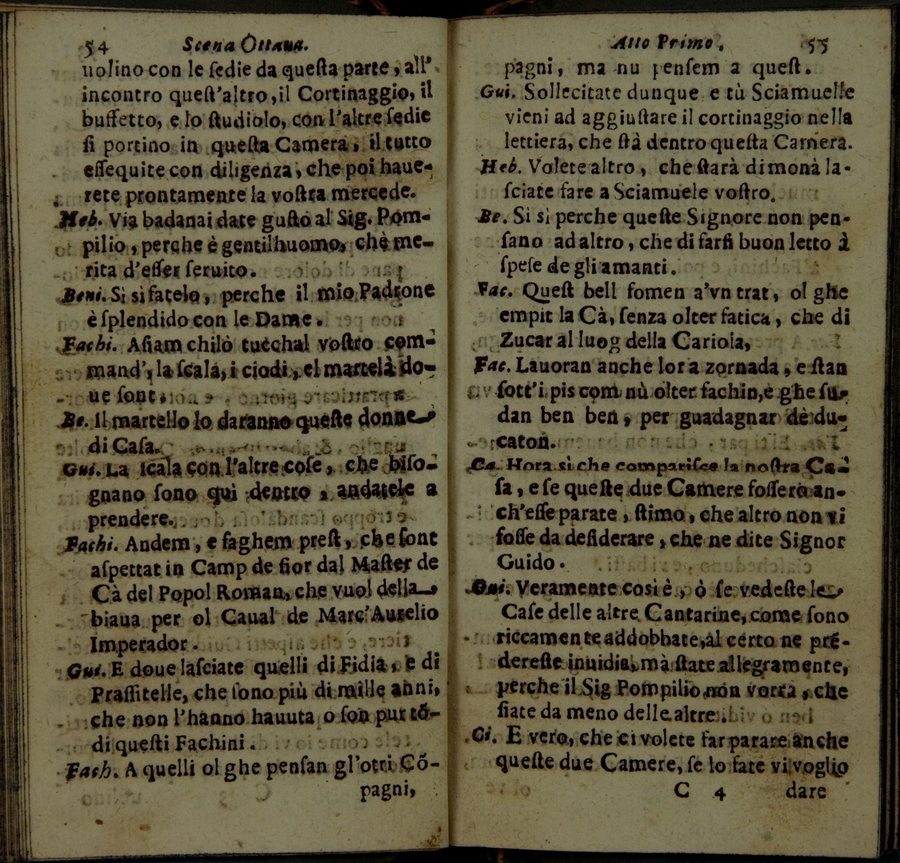 54 Scena Ottaua.
uolino con le ſedie da queſta parte, all'
incontro queſt'altro, il Cortinaggio, il
buffetto, e lo ſtudiolo, con l'altre ſedie
ſi portino in queſta Camera, il tutto
eſſequite con diligenza, che poi haue-
rete prontamente la voſtra mercede.
Heb. Via badanai date guſto al Sig. Pom-
pilio, perche è gentilhuomo, chè me-
rita d'eſſer ſeruito.
Beni. Si sì fatelo, perche il mio Padrone
è ſplendido con le Dame.
Fachi. Aſiam chilò tutchal voſtro com-
mand', la ſcala, i ciodi, el martelà do-
ue ſont.
Be. Il martello lo daranno queſte donne
di Caſa.
Gui. La ſcala con l'altre coſe, che biſo-
gnano ſono qui dentro, andatele a
prendere.
Fachi. Andem, e faghem preſt, che ſont
aſpettat in Camp de fior dal Maſter de
Cà del Popol Roman, che vuol della
biaua per ol Caual de Marc'Aurelio
Imperador.
Gui. E doue laſciate quelli di Fidia, e di
Praſſitelle, che ſono più di mille anni,
che non l'hanno hauuta o ſon pur tõ-
di queſti Fachini.
Fach. A quelli ol ghe penſan gl'otri Cõ-
pagni,
Atto Primo. 55
pagni, ma nu penſem a queſt.
Gui. Sollecitate dunque e tù Sciamuelle
vieni ad aggiuſtare il cortinaggio nella
lettiera, che ſtà dentro queſta Camera.
Heb. Volete altro, che ſtarà di monà la-
ſciate fare a Sciamuele voſtro.
Be. Si sì perche queſte Signore non pen-
ſano ad altro, che di farſi buon letto à
ſpeſe de gli amanti.
Fac. Queſt bell fomen a'vn trat, ol ghe
empit la Cà, ſenza olter fatica, che di
Zucar al luog della Cariola,
Fac. Lauoran anche lor a zornada, e ſtan
ſott'i pis com nù olter fachin, e ghe ſu-
dan ben ben, per guadagnar dè du-
caton.
Ca. Hora sì che compariſce la noſtra Ca-
ſa, e ſe queſte due Camere foſſero an-
ch'eſſe parate, ſtimo, che altro non vi
foſſe da deſiderare, che ne dite Signor
Guido.
Gui. Veramente così è, ò ſe vedeſte le
Caſe delle altre Cantarine, come ſono
riccamente addobbate, al certo ne prẽ-
dereſte inuidia, mà ſtate allegramente,
perche il Sig Pompilio non vorrà, che
ſiate da meno delle altre.
Ci. E vero, che ci volete far parare anche
queſte due Camere, ſe lo fate vi voglio
C 4 dare